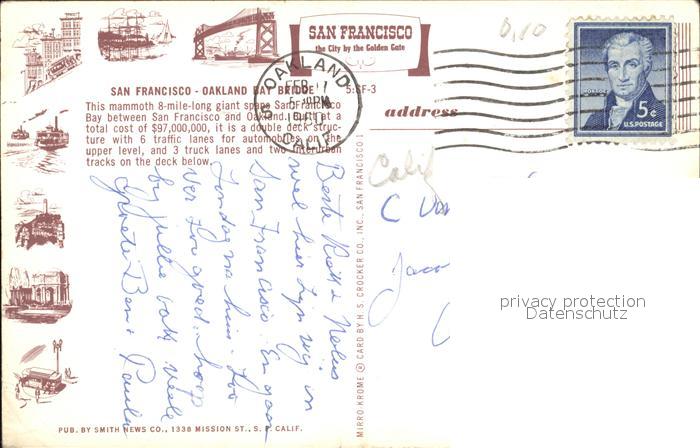 SAN FRANCISCO
the City by the Golden Gate
SAN FRANCISCO - OAKLAND BAY BRIDGE 5:SF-3
This mammoth 8-mile-long giant spans San Francisco
Bay between San Francisco and Oakland. Built at a
total cost of $97,000,000, it is a double deck struc-
ture with 6 traffic lanes for automobiles on the
upper level, and 3 truck lanes and two interurban
tracks on the deck below.
address
OAKLAND
FEB 11
PM
CALIF.
5¢
U.S. POSTAGE
Calif
C
Beste & Nelus
wel hier zyn wy in
San Francisco. En gaan
Zondag na huis.
Ver goed. hoop
by jullie ook
Groeten Ben & Paula
privacy protection
Datenschutz
MIRRO-KROME ® CARD BY H. S. CROCKER CO., INC., SAN FRANCISCO 1
PUB. BY SMITH NEWS CO., 1338 MISSION ST., S. F. CALIF.